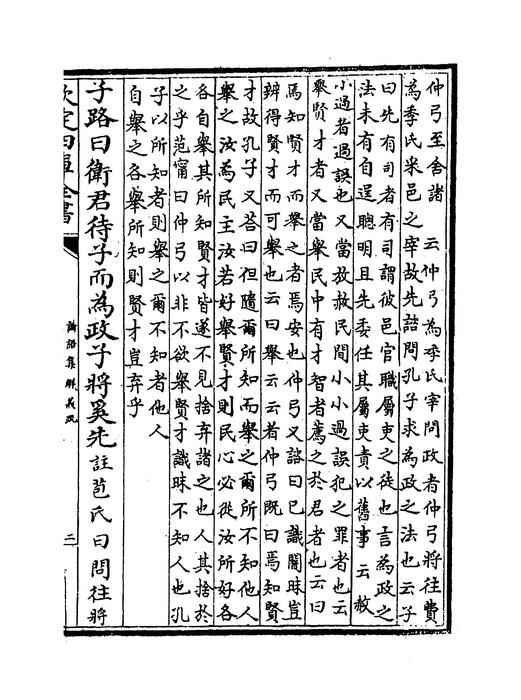 仲弓至舍諸　云仲弓為季氏宰問政者仲弓將往費
為季氏采邑之宰故先諮問孔子求為政之法也云子
曰先有司者有司謂彼邑官職屬吏之徒也言為政之
法未有自逞聰明且先委任其屬吏責以舊事　云赦
小過者過誤也又當放赦民間小小過誤犯之罪者也云
舉賢才者又當舉民中有才智者薦之於君者也云曰
焉知賢才而舉之者焉安也仲弓又諮曰已識闇昧豈
辨得賢才而可舉也云曰舉云云者仲弓既曰焉知賢
才故孔子又荅曰但隨爾所知而舉之爾所不知他人
舉之汝為民主汝若好舉賢才則民心必從汝所好各
各自舉其所知賢才皆遂不見捨弃諸之也人其捨於
之乎范甯曰仲弓以非不欲舉賢才識昧不知人也孔
子以所知者則舉之爾不知者他人
自舉之各舉所知則賢才豈弃乎
子路曰衛君待子而為政子將奚先註苞氏曰問往將
欽定四庫全書
論語集解義疏
三